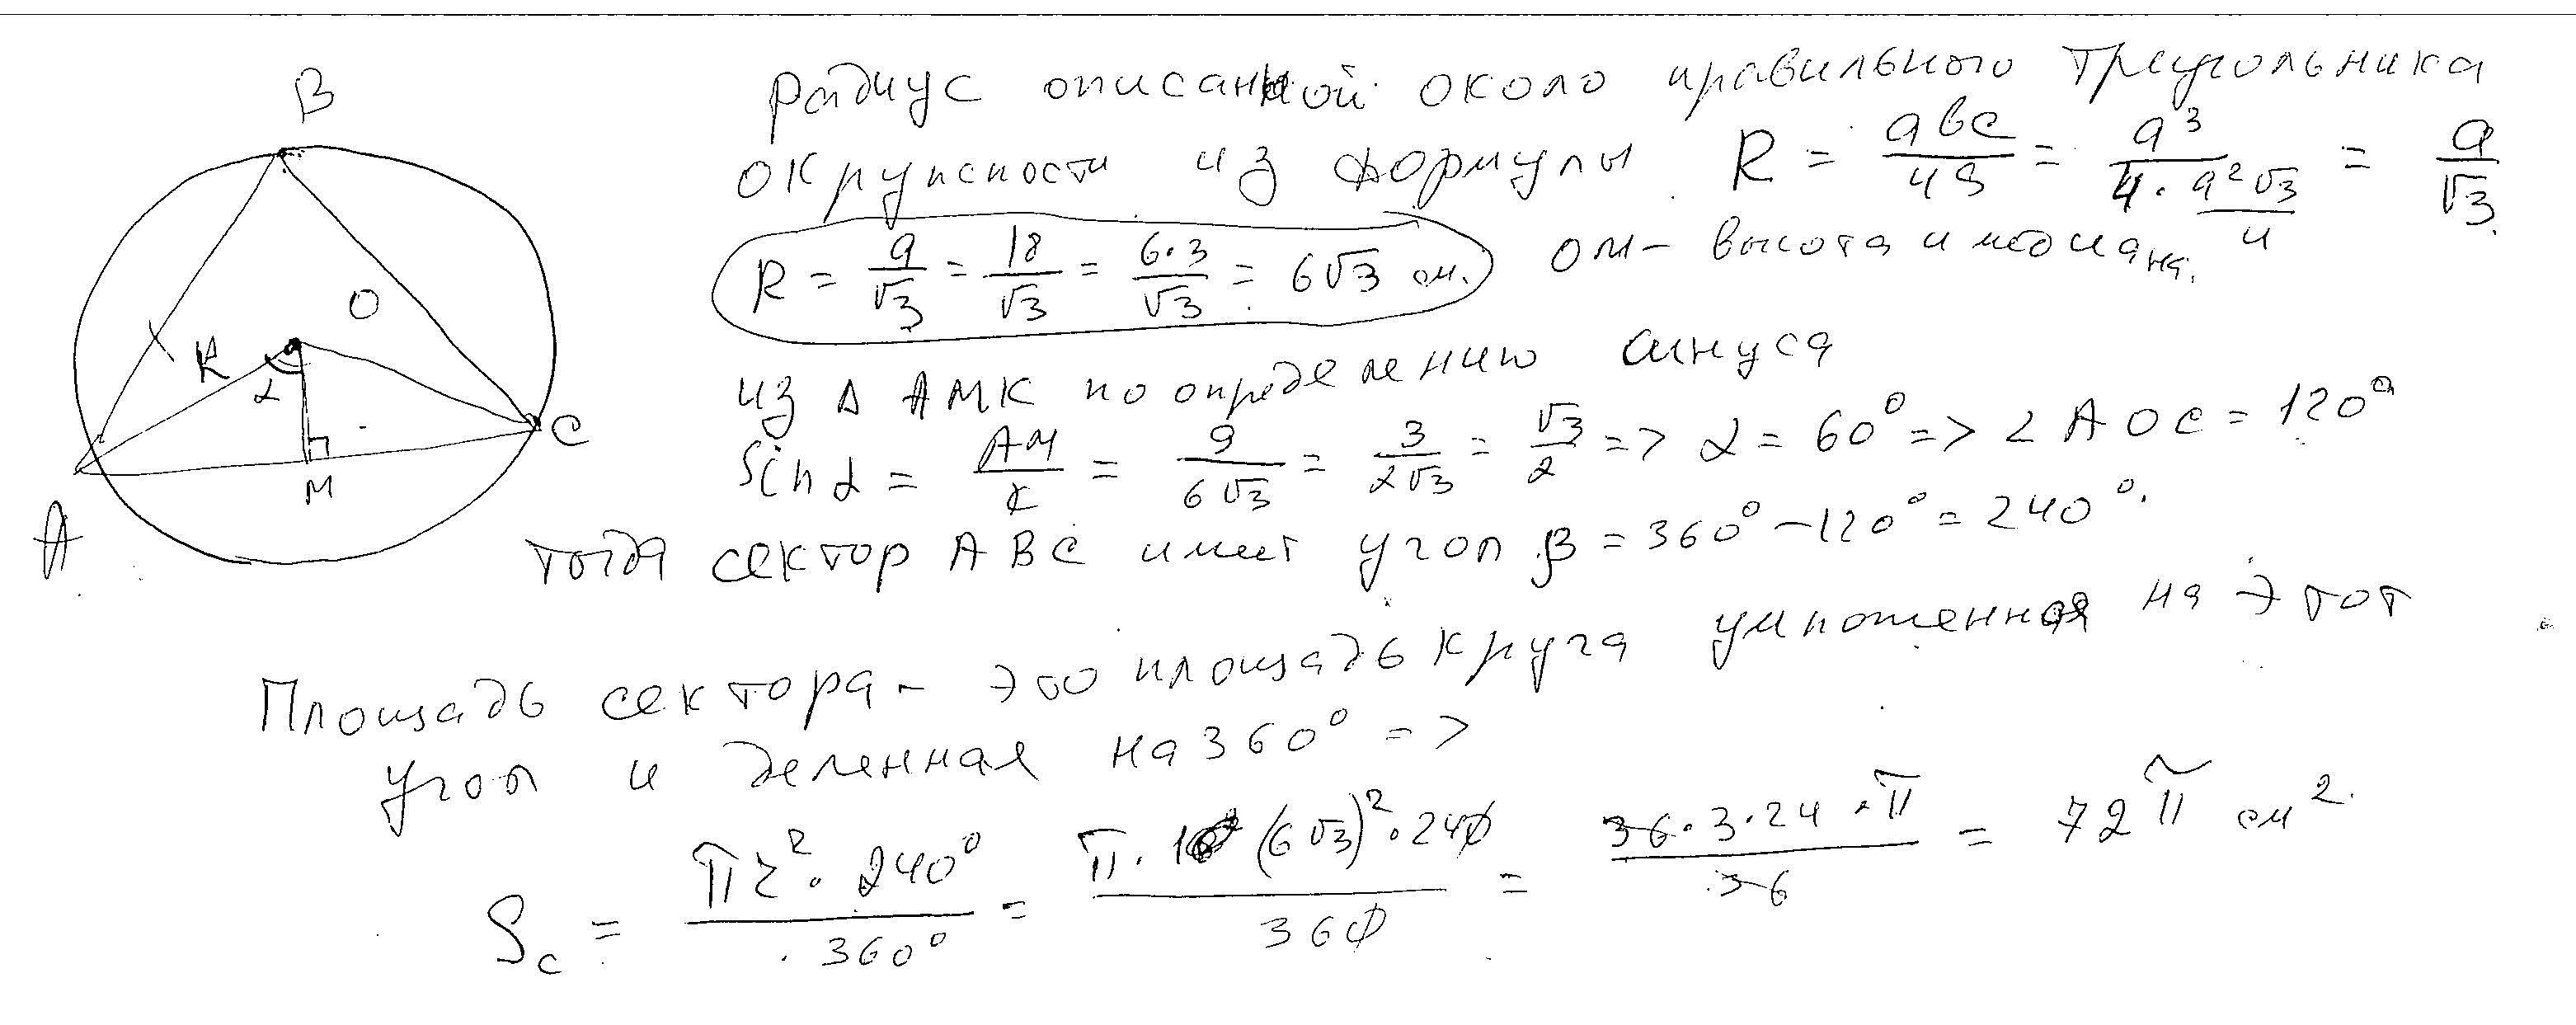 B
O
R
α
C
M
A
радиус описанной около правильного треугольника
окружности из формулы R = abc/4S = a³/(4 · a²√3/4) = a/√3.
R = a/√3 = 18/√3 = 6·3/√3 = 6√3 см. OM – высота и медиана.
из Δ AMK по определению синуса
Sin α = AM/r = 9/6√3 = 3/2√3 = √3/2 => α = 60° => ∠ AOC = 120°
тогда сектор ABC имеет угол β = 360° – 120° = 240°.
Площадь сектора – это площадь круга умноженная на этот
угол и деленная на 360° =>
Sc = πr² · 240°/360° = π · (6√3)² · 240/360 = 36·3·24·π/36 = 72π см².